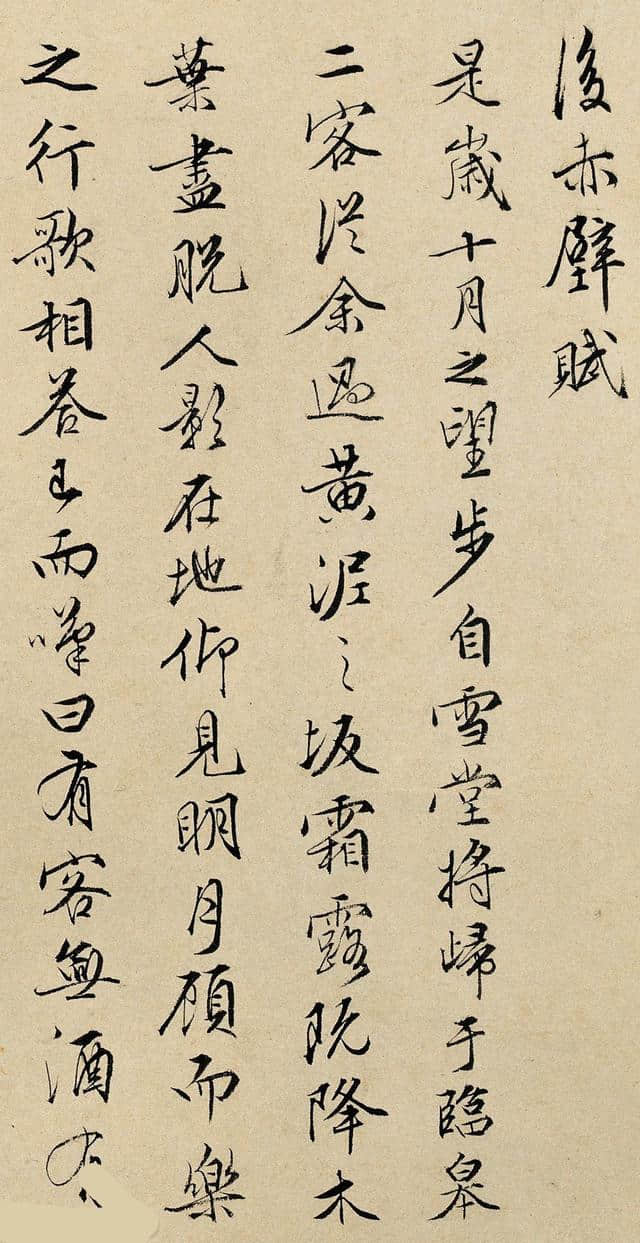 後赤壁賦
是歲十月之望步自雪堂將歸于臨皋
二客從余過黃泥之坂霜露既降木
葉盡脫人影在地仰見明月顧而樂
之行歌相答已而嘆曰有客無酒有